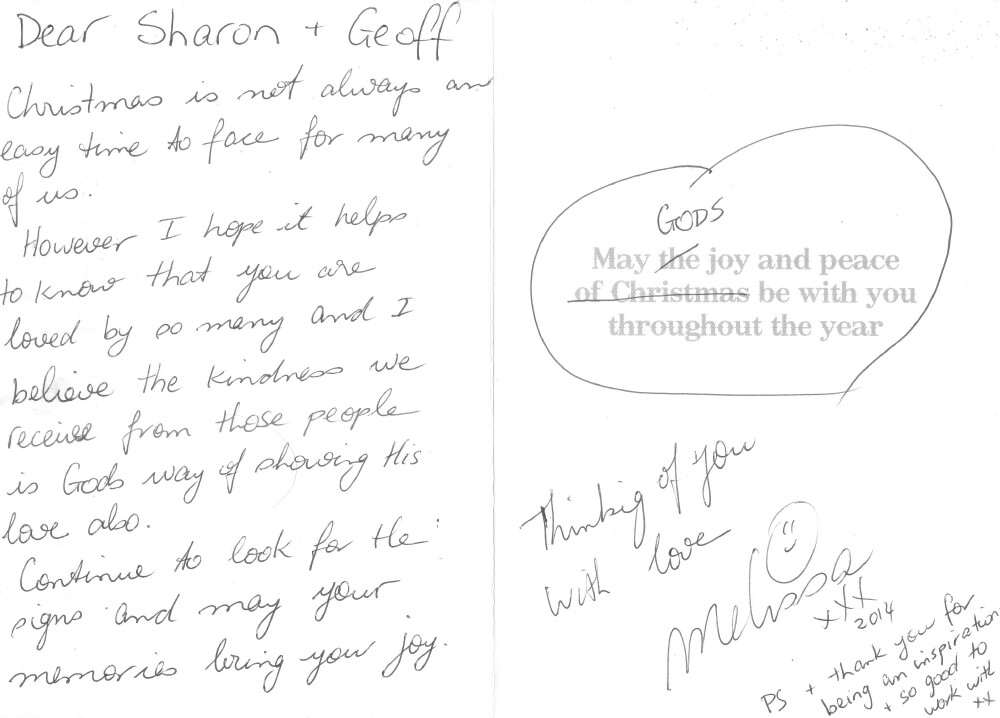 Dear Sharon + Geoff
Christmas is not always an
easy time to face for many
of us.
However I hope it helps
to know that you are
loved by so many and I
believe the kindness we
receive from those people
is Gods way of showing His
love also.
Continue to look for the
signs and may your
memories bring you joy.
GODS
May the joy and peace
of Christmas be with you
throughout the year
Thinkig of you
with love
Melissa
xxx
2014
PS + thank you for
being an inspiration
+ so good to
work with
xx